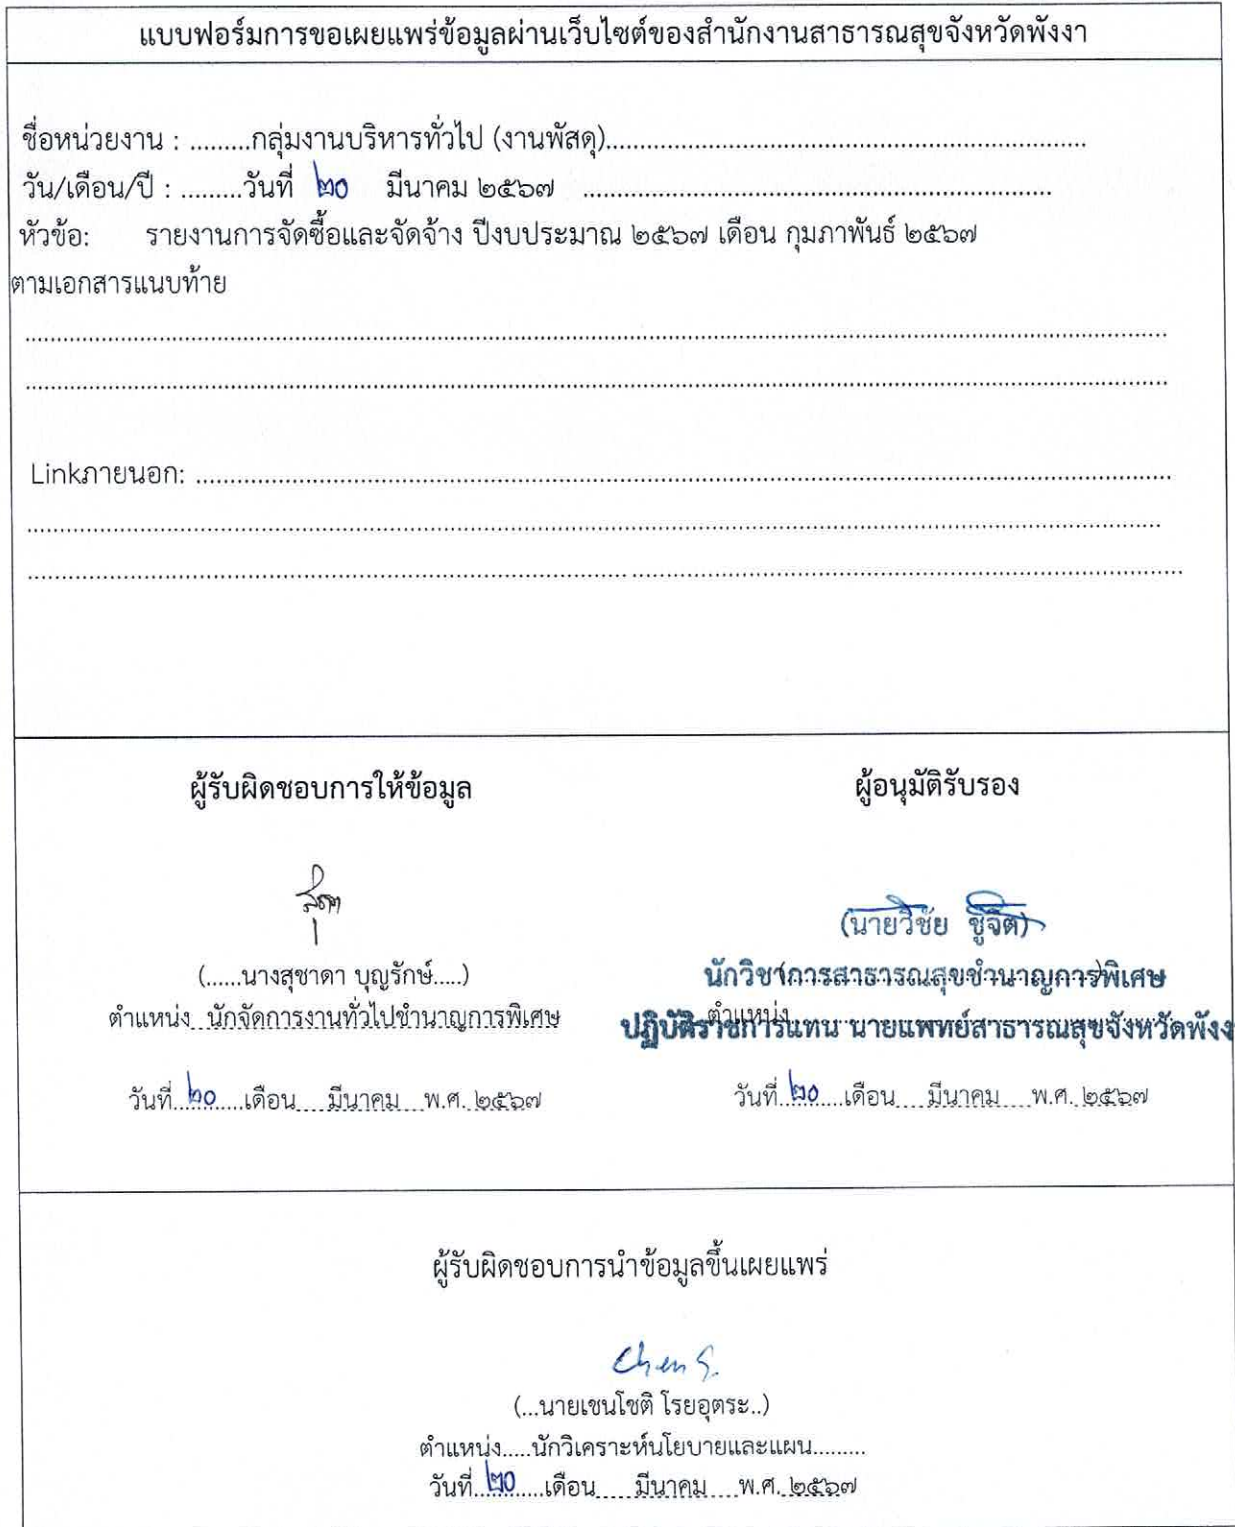 แบบฟอร์มการขอเผยแพร่ข้อมูลผ่านเว็บไซต์ของสำนักงานสาธารณสุขจังหวัดพังงา
ชื่อหน่วยงาน : .........กลุ่มงานบริหารทั่วไป (งานพัสดุ)......................................................................
วัน/เดือน/ปี : .........วันที่ ๒๐ มีนาคม ๒๕๖๗ ......................................................................
หัวข้อ: รายงานการจัดซื้อและจัดจ้าง ปีงบประมาณ ๒๕๖๗ เดือน กุมภาพันธ์ ๒๕๖๗
ตามเอกสารแนบท้าย
Linkภายนอก: ......................................................................
ผู้รับผิดชอบการให้ข้อมูล
ผู้อนุมัติรับรอง
(......นางสุชาดา บุญรักษ์.....)
ตำแหน่ง..นักจัดการงานทั่วไปชำนาญการพิเศษ
วันที่..๒๐.....เดือน.....มีนาคม....พ.ศ. ๒๕๖๗
(นายวิชัย ชูจิต)
นักวิชาการสาธารณสุขชำนาญการพิเศษ
ตำแหน่ง
ปฏิบัติราชการแทน นายแพทย์สาธารณสุขจังหวัดพังง
วันที่..๒๐.....เดือน.....มีนาคม.....พ.ศ. ๒๕๖๗
ผู้รับผิดชอบการนำข้อมูลขึ้นเผยแพร่
Chen S.
(...นายเชนโชติ โรยอุตระ..)
ตำแหน่ง.....นักวิเคราะห์นโยบายและแผน.........
วันที่..๒๐.....เดือน......มีนาคม.....พ.ศ. ๒๕๖๗